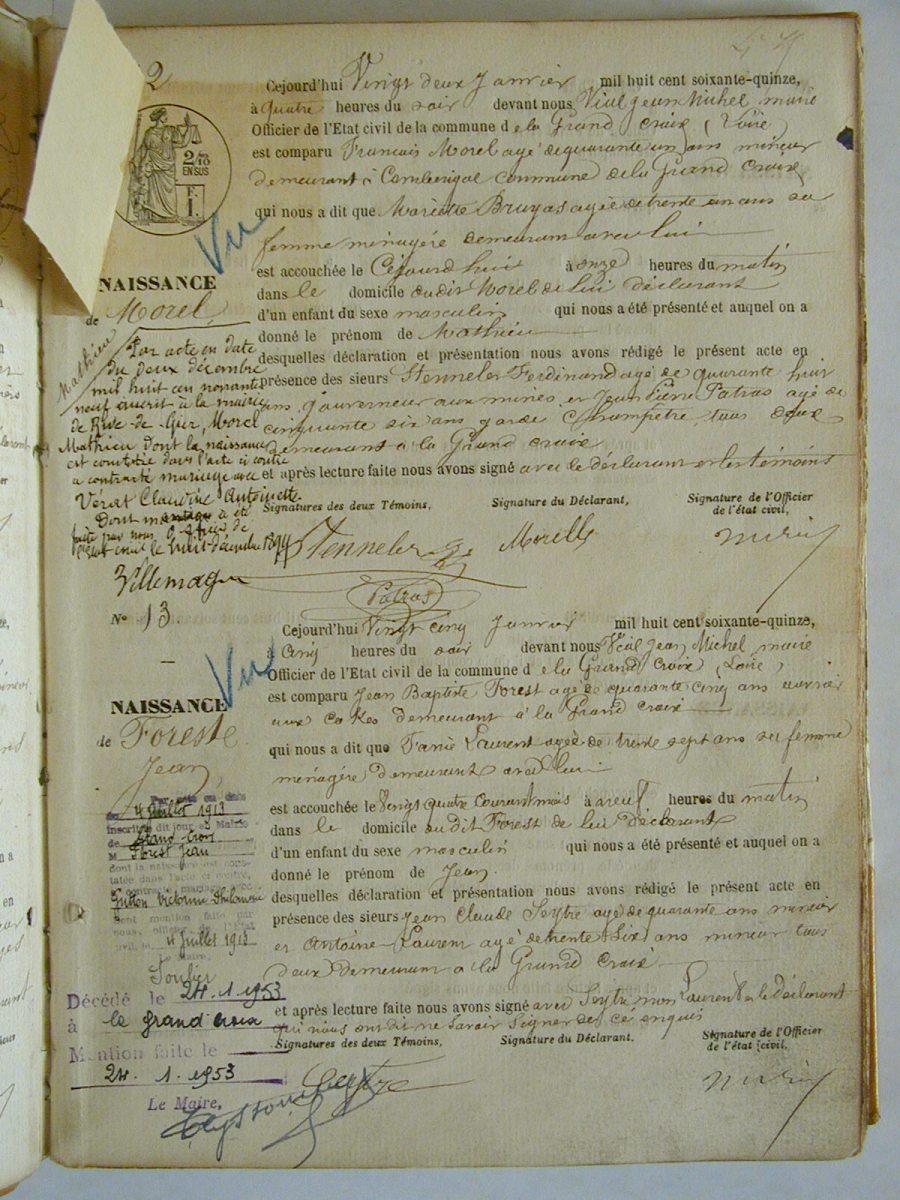 2
2/10
EN SUS
NAISSANCE
de Morel
Mathieu
Par acte en date
du deux décembre
mil huit cent nonante
neuf inscrit à la mairie
de Rive-de-Gier, Morel
Mathieu dont la naissance
est constatée dans l'acte ci contre
a contracté mariage avec
Vérat Claudine Antoinette
Dont mention a été
faite par nous
le huit décembre 1899
Villemagne
Vu
Cejourd'hui Vingt deux Janvier mil huit cent soixante-quinze,
à quatre heures du soir devant nous Vial Jean Michel maire
Officier de l'Etat civil de la commune de la Grand croix (Loire)
est comparu Francois Morel agé de quarante un ans mineur
demeurant à Combérigol commune de la Grand Croix
qui nous a dit que Mariette Bruyas agée de trente un ans sa
femme ménagère demeurant avec lui
est accouchée le Cejourd'hui à onze heures du matin
dans le domicile dudit Morel de lui déclarant
d'un enfant du sexe masculin qui nous a été présenté et auquel on a
donné le prénom de Mathieu
desquelles déclaration et présentation nous avons rédigé le présent acte en
présence des sieurs Stenneler Ferdinand agé de quarante huit
ans gouverneur aux mines et Jean Pierre Patras agé de
cinquante six ans garde Champêtre tous deux
demeurant à la Grand croix
et après lecture faite nous avons signé avec le déclarant et les témoins
Signatures des deux Témoins, Signature du Déclarant, Signature de l'Officier
de l'état civil,
Stenneler Morelle
Patras
N° 13
Vu
NAISSANCE
de Foreste
Jean
Par acte en date
du 4 Juillet 1913
inscrit dit jour à Mairie
de Grand Croix
M Forest Jean
dont la naissance est cons-
tatée dans l'acte ci contre,
a contracté mariage avec
Victorine Philomène
Dont mention faite par
nous, officier de l'Etat
civil, le 4 Juillet 1913
Le Maire,
Décédé le 24.1.1953
à la grand croix
Mention faite le
24.1.1953
Le Maire,
Cejourd'hui Vingt cinq Janvier mil huit cent soixante-quinze,
à Cinq heures du soir devant nous Vial Jean Michel maire
Officier de l'Etat civil de la commune de la Grand Croix (Loire)
est comparu Jean Baptiste Forest agé de quarante cinq ans ouvrier
aux cokes demeurant à la Grand croix
qui nous a dit que Fanie Laurent agée de trente sept ans sa femme
ménagère demeurant avec lui
est accouchée le Vingt quatre courant mois à neuf heures du matin
dans le domicile dudit Forest de lui déclarant
d'un enfant du sexe masculin qui nous a été présenté et auquel on a
donné le prénom de Jean
desquelles déclaration et présentation nous avons rédigé le présent acte en
présence des sieurs Jean Claude Seytre agé de quarante ans mineur
et Antoine Laurent agé de trente six ans mineur tous
deux demeurant à la Grand Croix
et après lecture faite nous avons signé avec Seytre non Laurent et le déclarant
qui nous ont dit ne savoir signer de ce enquis
Signatures des deux Témoins, Signature du Déclarant. Signature de l'Officier
de l'état civil,
Seytre